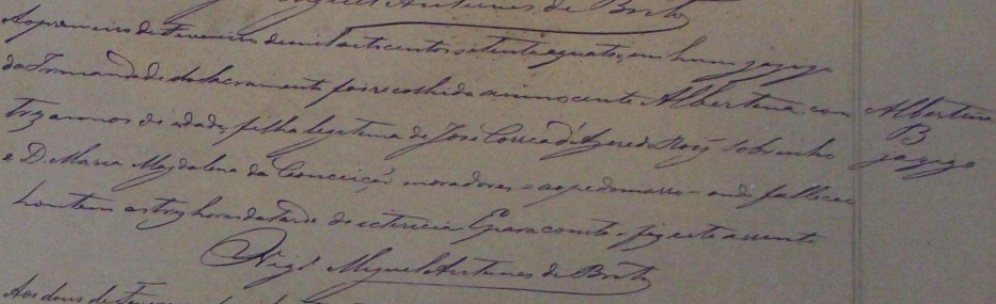 Miguel Antunes de Brito
Ao primeiro de Fevereiro de mil oitocentos setenta e quatro, em hum jazigo
da Irmandade do Sacramento foi recolhida a innocente Albertina com
trez annos de idade, filha legitima de José Correa d'Azeredo Roiz Sobrinho
e D. Maria Magdalena da Conceição moradores = ao pé do morro = onde falleceu
hontem as trez horas da tarde de ictericia. E para constar fiz este assento
Vigº Miguel Antunes de Brito
Albertina
B
jazigo
Aos dous de